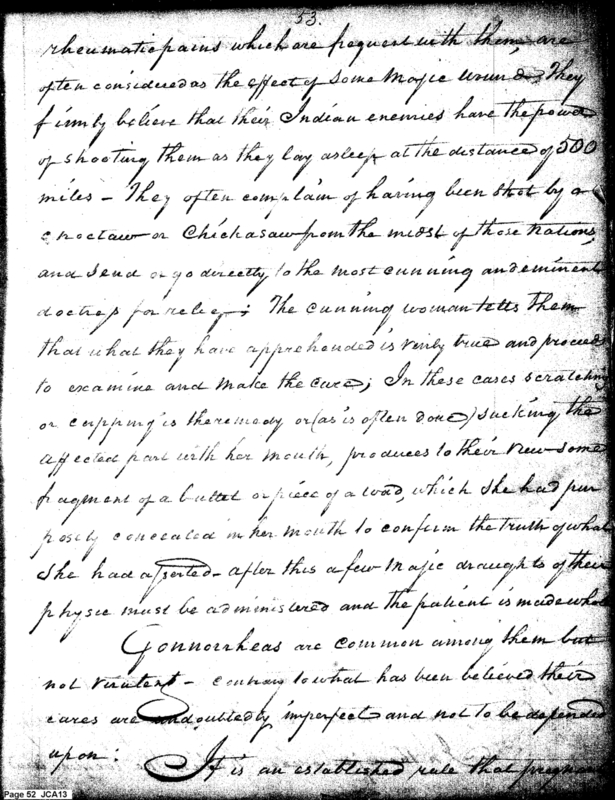 53.
rheumatic pains which are frequent with them, are
often considered as the effect of some Majic wound. They
firmly believe that their Indian enemies have the power
of shooting them as they lay asleep at the distance of 500
miles - They often complain of having been shot by a
Choctaw or Chickasaw from the midst of those Nations,
and send or go directly to the most cunning and eminent
doctress for relief; The cunning woman tells them
that what they have apprehended is verily true and proceeds
to examine and make the cure; In these cases scratching
or cupping is the remedy or (as is often done) sucking the
affected part with her mouth, produces to their view some
fragment of a bullet or piece of a wad, which she had pur
posely concealed in her mouth to confirm the truth of what
she had asserted - after this a few Majic draughts of their
physic must be administered and the patient is made whole
Gonnorrheas are common among them but
not virulent - contrary to what has been believed their
cares are undoubtedly imperfect and not to be depended
upon:
It is an established rule that
Page 52 JCA13